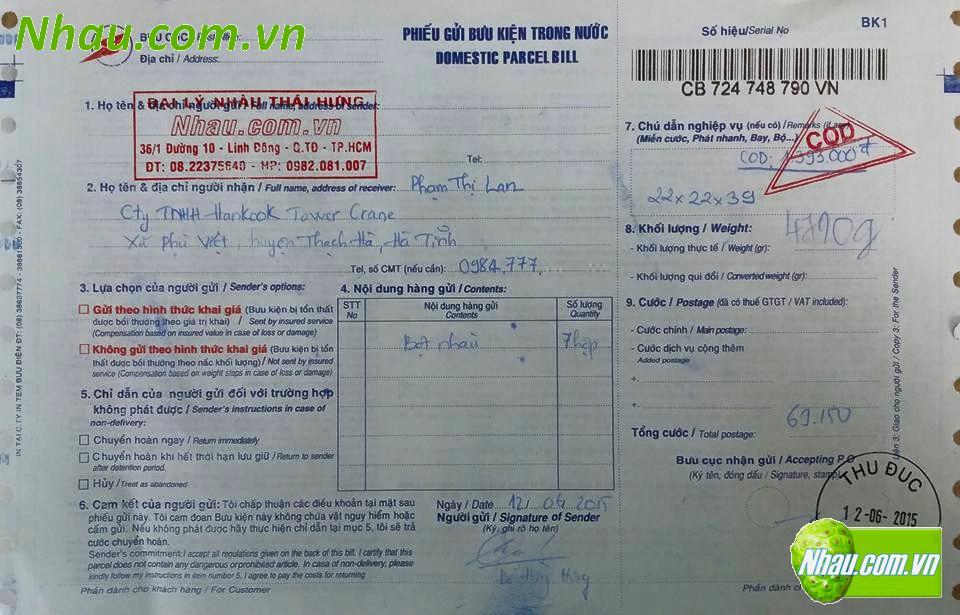 Nhau.com.vn
BƯU CỤC
Địa chỉ / Address:
PHIẾU GỬI BƯU KIỆN TRONG NƯỚC
DOMESTIC PARCEL BILL
BK1
Số hiệu/Serial No
CB 724 748 790 VN
1. Họ tên & địa chỉ người gửi / Full name, address of sender:
ĐẠI LÝ NHÀU THÁI HƯNG
Nhau.com.vn
36/1 Đường 10 - Linh Đông - Q.TĐ - TP.HCM
ĐT: 08.22375640 - HP: 0982.081.007
Tel:
2. Họ tên & địa chỉ người nhận / Full name, address of receiver: Phạm Thị Lan
Cty TNHH Hankook Tower Crane
Xã Phù Việt, huyện Thạch Hà, Hà Tĩnh
Tel, số CMT (nếu cần): 0984.777.
3. Lựa chọn của người gửi / Sender's options:
Gửi theo hình thức khai giá (Bưu kiện bị tổn thất
được bồi thường theo giá trị khai) / Sent by insured service
(Compensation based on insured value in case of loss or damage)
Không gửi theo hình thức khai giá (Bưu kiện bị tổn
thất được bồi thường theo nấc khối lượng) / Not sent by insured
service (Compensation based on weight steps in case of loss or damage)
4. Nội dung hàng gửi / Contents:
STT
No
Nội dung hàng gửi
Contents
Số lượng
Quantity
Bột nhàu
7 hộp
5. Chỉ dẫn của người gửi đối với trường hợp
không phát được / Sender's instructions in case of
non-delivery:
Chuyển hoàn ngay / Return immediately
Chuyển hoàn khi hết thời hạn lưu giữ / Return to sender
after detention period.
Hủy / Treat as abandoned
6. Cam kết của người gửi: Tôi chấp thuận các điều khoản tại mặt sau
phiếu gửi này. Tôi cam đoan Bưu kiện này không chứa vật nguy hiểm hoặc
cấm gửi. Nếu không phát được hãy thực hiện chỉ dẫn tại mục 5, tôi sẽ trả
cước chuyển hoàn.
Sender's commitment: I accept all regulations given on the back of this bill. I certify that this
parcel does not contain any dangerous or prohibited article. In case of non-delivery, please
kindly follow my instructions in item number 5. I agree to pay the costs for returning
Phần dành cho khách hàng / For Customer
Ngày / Date 12/ 2015
Người gửi / Signature of Sender
(Ký, ghi rõ họ tên)
7. Chú dẫn nghiệp vụ (nếu có) / Remarks (if any)
(Miễn cước, Phát nhanh, Bay, Bộ...)
COD
COD: 1.393.000đ
22 x 22 x 39
8. Khối lượng / Weight:
- Khối lượng thực tế / Weight (gr):
- Khối lượng qui đổi / Converted weight (gr):
9. Cước / Postage (đã có thuế GTGT / VAT included):
- Cước chính / Main postage:
- Cước dịch vụ cộng thêm
Added postage
+
+
69.150
Tổng cước / Total postage:
Bưu cục nhận gửi / Accepting P.O
(Ký tên, đóng dấu / Signature, stamp)
THU DUC
12-06-2015
Nhau.com.vn
Phần dành cho
Liên 3: Giao cho người gửi / Copy 3: For the Sender